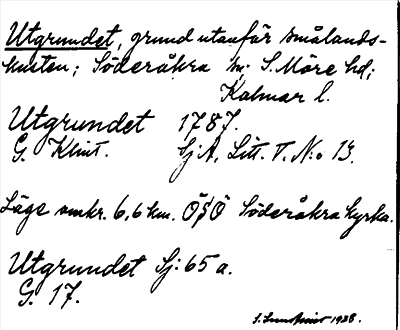 Utgrundet, grund utanför smålands-
kusten; Söderåkra sn; S. Möre hd;
Kalmar l.
Utgrundet 1787.
G. Klint. Sj A, Litt. T. N:o 13.
Läge omkr. 6,6 km. ÖSÖ Söderåkra kyrka.
Utgrundet Sj: 65 a.
G. 17.
1928.